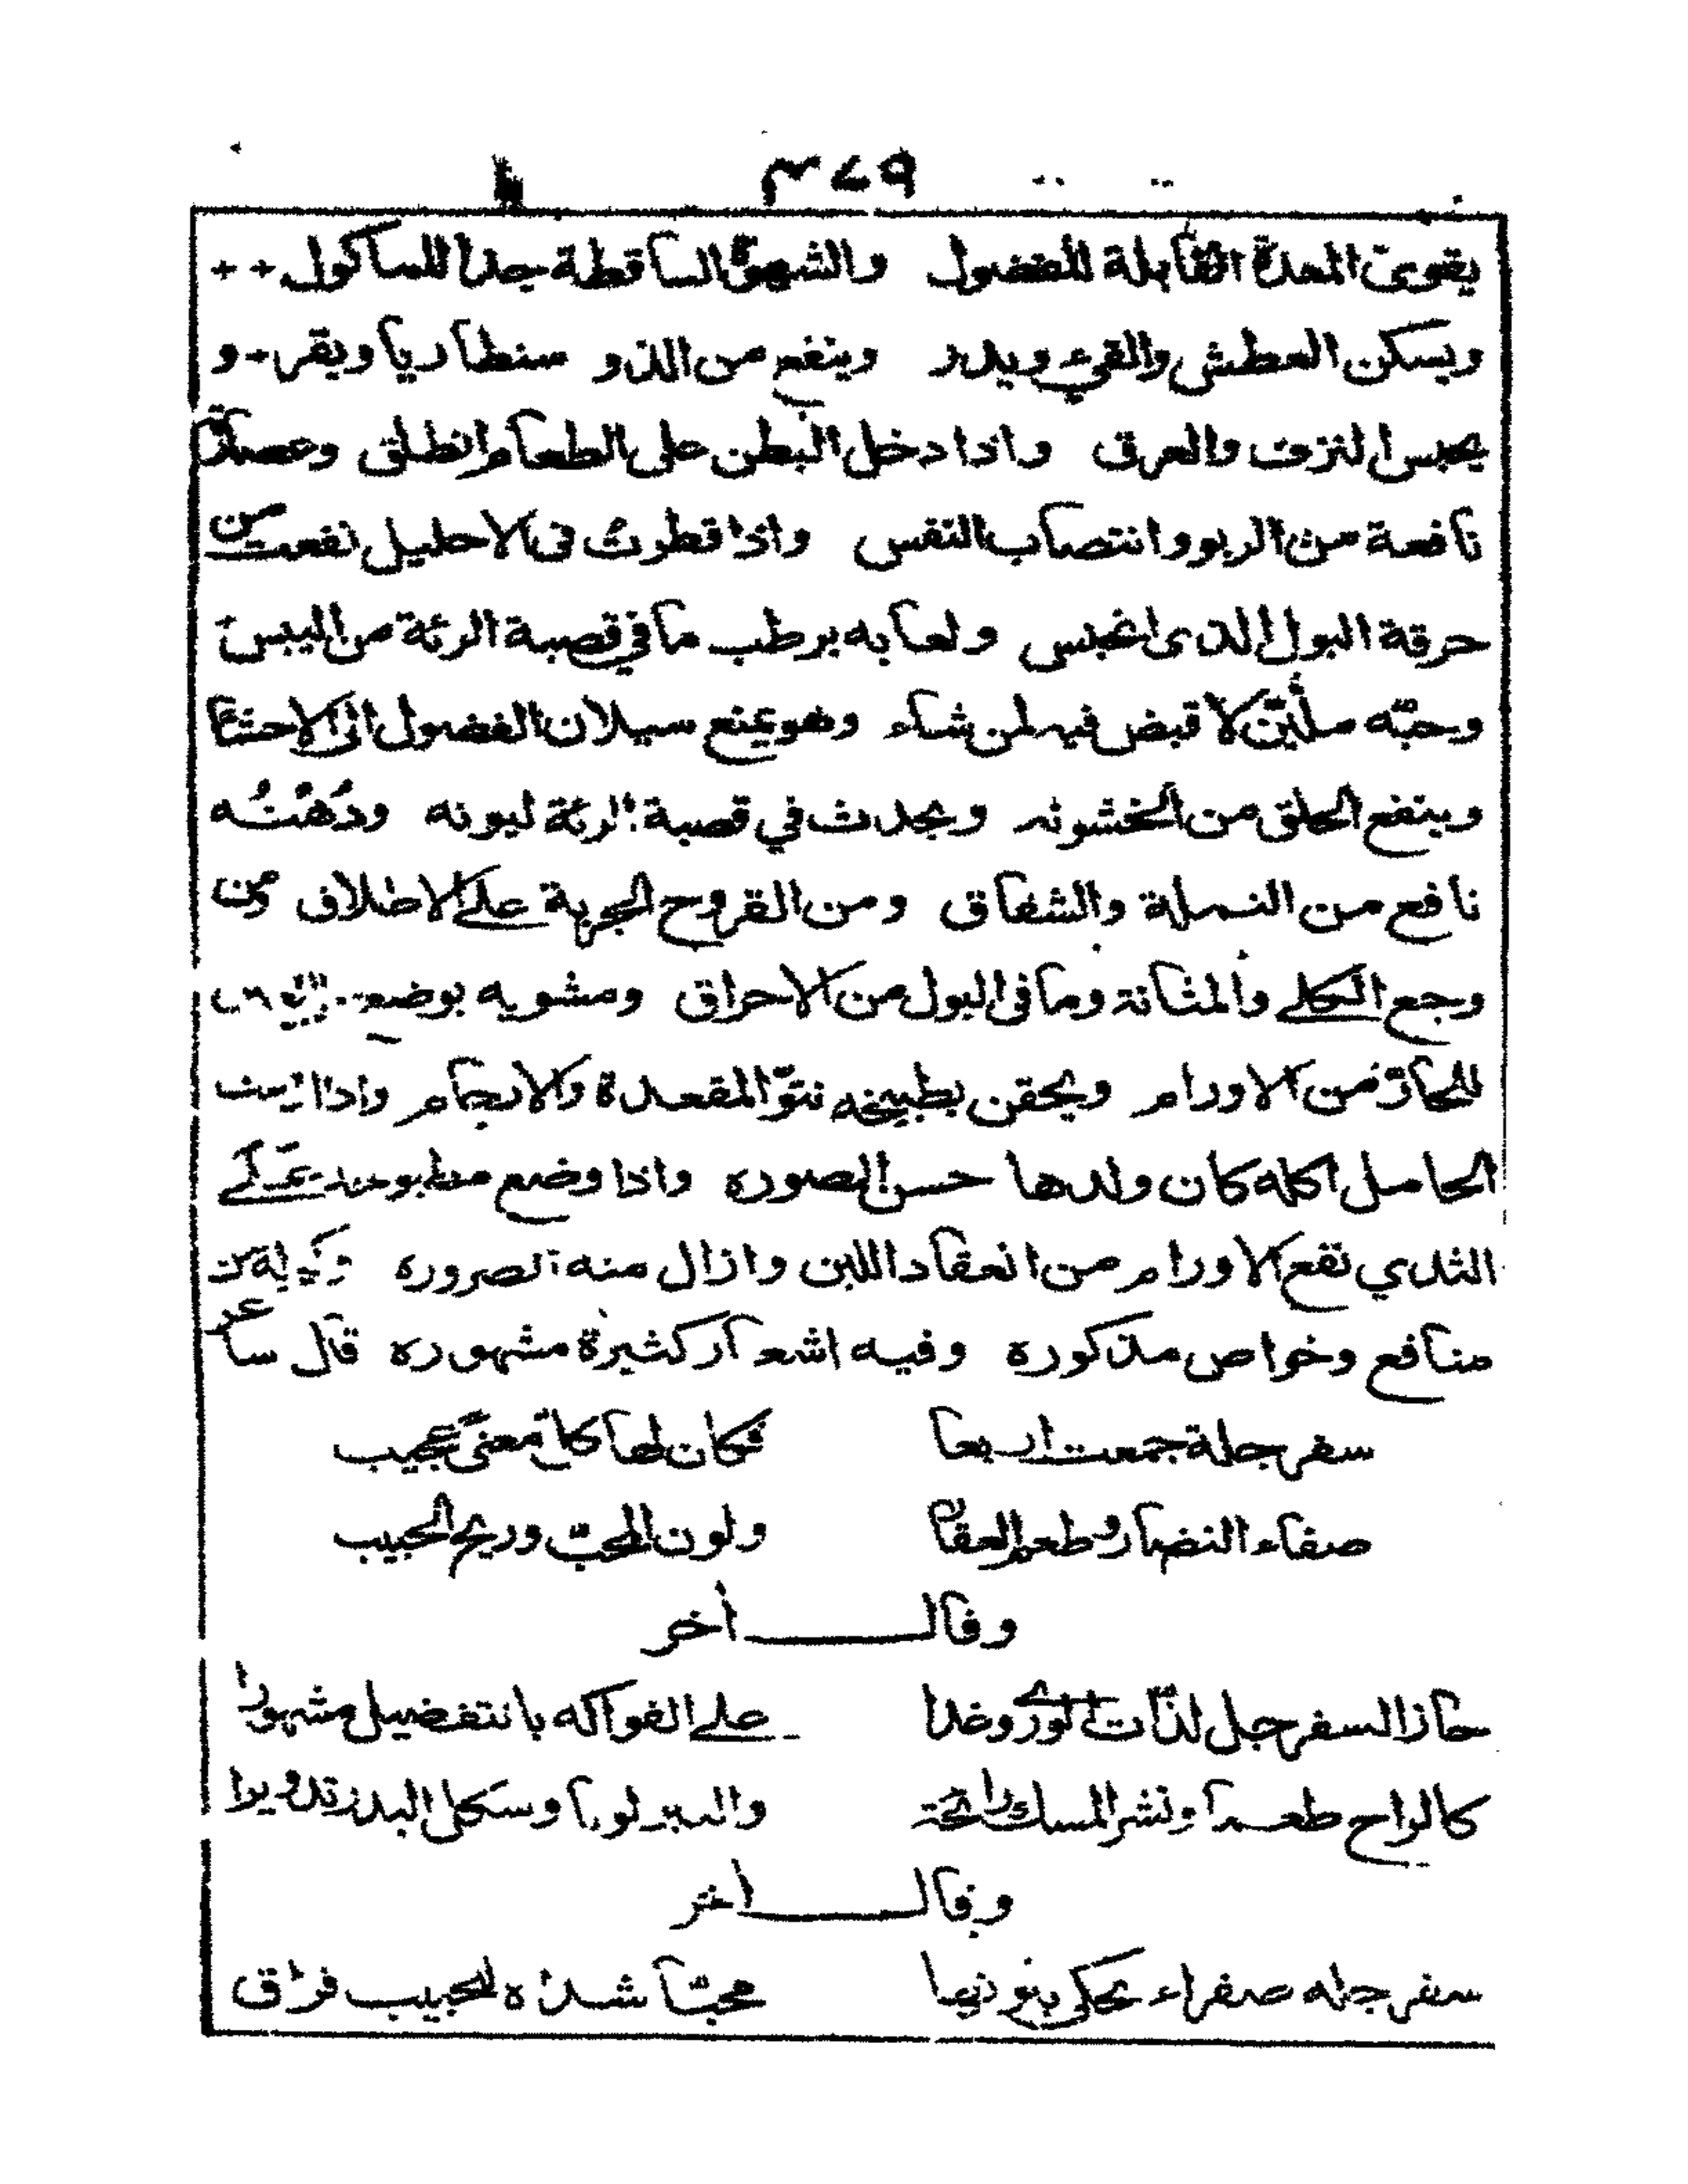 ٣٧٩
يقوى المعدة القابلة للفضول والشهوة الساقطة جدا للمأكول
ويسكن العطش والقيء ويدر وينفع من الذو سنطاريا ويقر و
يحبس النزف والعرق واذا دخل البطن على الطعام انطلق وعصارته
نافعة من الربو وانتصاب النفس واذا قطرت فى الاحليل نفعت من
حرقة البول الذى احتبس ولعابه يرطب ما في قصبة الرئة من اليبس
وحبّه مليّن لا قبض فيه لمن شاء وهو يمنع سيلان الفضول الى الاحشا
وينفع الحلق من الخشونه ويحدث في قصبة الرئة ليونه ودُهنُه
نافع من النملة والشقاق ومن القروح الجربة على الاطلاق ومن
وجع الكلى والمثانة وما فى البول من الاحراق ومشويه يوضع
للحارّ من الاورام ويحقن بطبيخه نتوّ المقعدة والارحام واذا
الحامل اكله كان ولدها حسن الصوره واذا وضع على
الثدي نفع الاورام من انعقاد اللبن وازال منه الضروره
منافع وخواص مذكوره وفيه اشعار كثيرة مشهوره قال شاعر
سفرجلة جمعت اربعا فكان لها كل معنى عجيب
صفاء النضار وطعم العقار ولون المحبّ وريح الحبيب
وقال أخر
حاز السفرجل لذّات الورى وغدا على الفواكه بالتفضيل مشهورا
كالراح طعما ونشر المسك رائحة والتبر لونا وشكل البدر تدويرا
وقال اخر
سفرجله صفراء تحكى بلونها محبّا شجاه للحبيب فراق